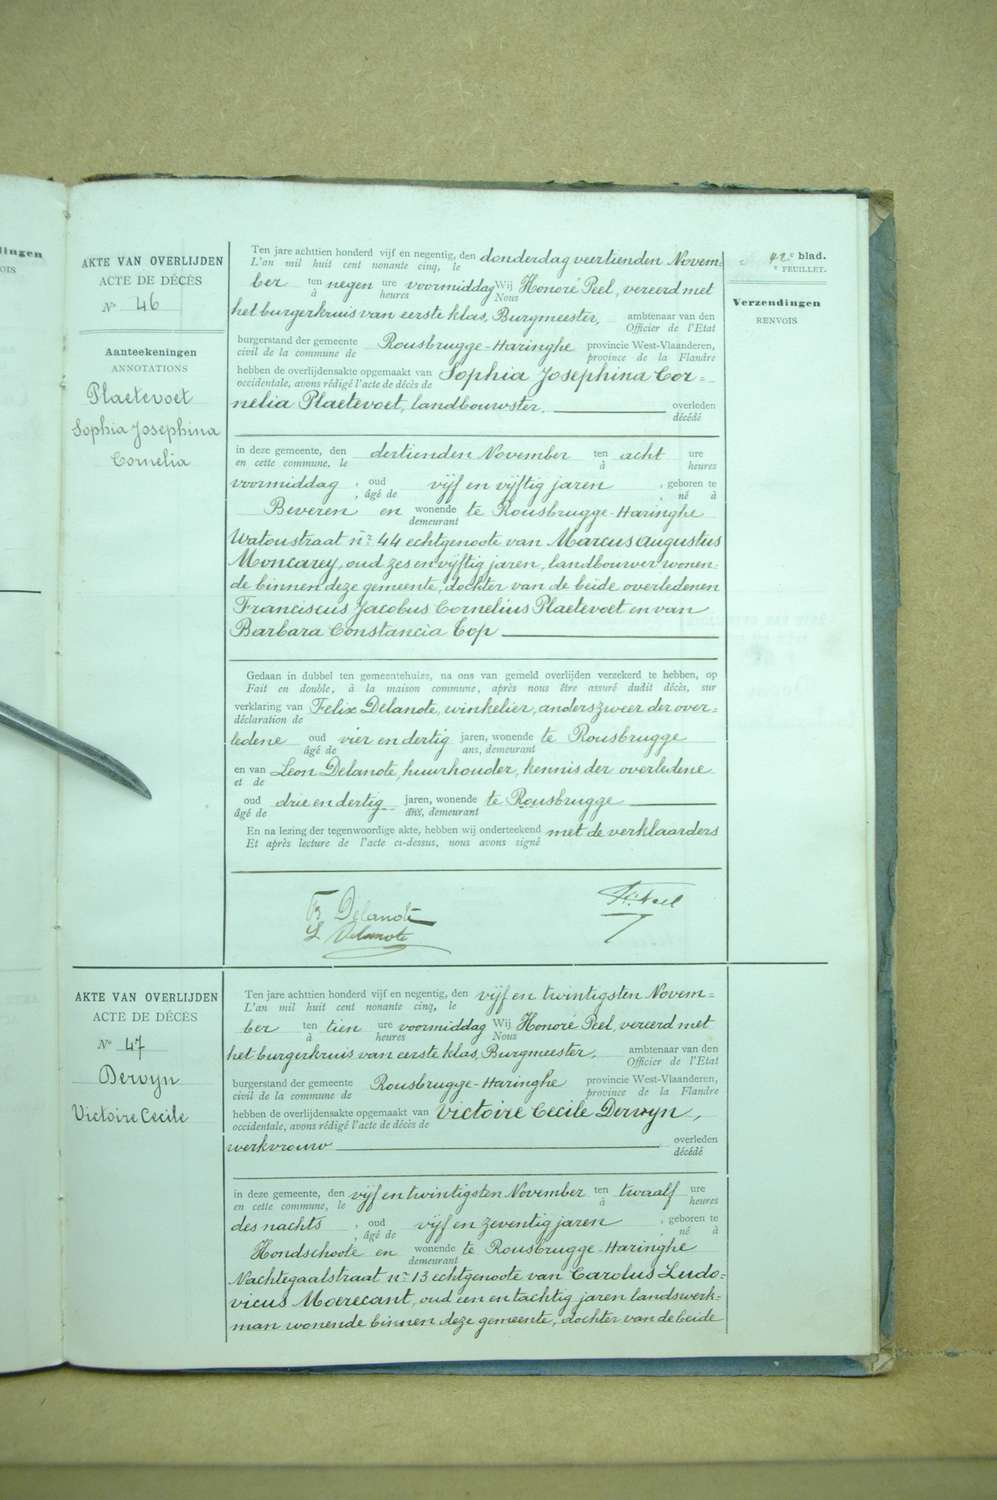 dingen
OIS
AKTE VAN OVERLIJDEN
ACTE DE DÉCÈS
N° 46
Aanteekeningen
ANNOTATIONS
Plaetevoet
Sophia Josephina
Cornelia
Ten jare achttien honderd vijf en negentig, den donderdag veertienden Novem=
L'an mil huit cent nonante cinq, le
ber ten negen ure voormiddag Wij Honoré Peel, vereerd met
à heures Nous
het burgerkruis van eerste klas, Burgmeester, ambtenaar van den
Officier de l'Etat
burgerstand der gemeente Rousbrugge-Haringhe provincie West-Vlaanderen,
civil de la commune de province de la Flandre
hebben de overlijdensakte opgemaakt van Sophia Josephina Cor=
occidentale, avons rédigé l'acte de décès de
nelia Plaetevoet, landbouwster, overleden
décédé
in deze gemeente, den dertienden November ten acht ure
en cette commune, le à heures
voormiddag , oud vijf en vijftig jaren , geboren te
, âgé de , né à
Beveren en wonende te Rousbrugge-Haringhe
demeurant
Watoustraat n° 44 echtgenoote van Marcus Augustus
Moncarey, oud zes en vijftig jaren, landbouwer wonen=
de binnen deze gemeente, dochter van de beide overledenen
Franciscus Jacobus Cornelius Plaetevoet en van
Barbara Constancia Top
Gedaan in dubbel ten gemeentehuize, na ons van gemeld overlijden verzekerd te hebben, op
Fait en double, à la maison commune, après nous être assuré dudit décès, sur
verklaring van Felix Delanote, winkelier, anderszweer der over=
déclaration de
ledene oud vier en dertig jaren, wonende te Rousbrugge
âgé de ans, demeurant
en van Leon Delanote, huurhouder, kennis der overledene
et de
oud drie en dertig jaren, wonende te Rousbrugge
âgé de ans, demeurant
En na lezing der tegenwoordige akte, hebben wij onderteekend met de verklaarders
Et après lecture de l'acte ci-dessus, nous avons signé
F. Delanote
L Delanote
H. Peel
42e blad.
e FEUILLET.
Verzendingen
RENVOIS
AKTE VAN OVERLIJDEN
ACTE DE DÉCÈS
N° 47
Dervyn
Victoire Cecile
Ten jare achttien honderd vijf en negentig, den vijf en twintigsten Novem=
L'an mil huit cent nonante cinq, le
ber ten tien ure voormiddag Wij Honoré Peel, vereerd met
à heures Nous
het burgerkruis van eerste klas, Burgmeester, ambtenaar van den
Officier de l'Etat
burgerstand der gemeente Rousbrugge-Haringhe provincie West-Vlaanderen,
civil de la commune de province de la Flandre
hebben de overlijdensakte opgemaakt van Victoire Cecile Dervyn,
occidentale, avons rédigé l'acte de décès de
werkvrouw overleden
décédé
in deze gemeente, den vijf en twintigsten November ten twaalf ure
en cette commune, le à heures
des nachts , oud vijf en zeventig jaren , geboren te
, âgé de , né à
Hondschoote en wonende te Rousbrugge-Haringhe
demeurant
Nachtegaalstraat n° 13 echtgenoote van Carolus Ludo=
vicus Moerecant, oud een en tachtig jaren landswerk=
man wonende binnen deze gemeente, dochter van de beide